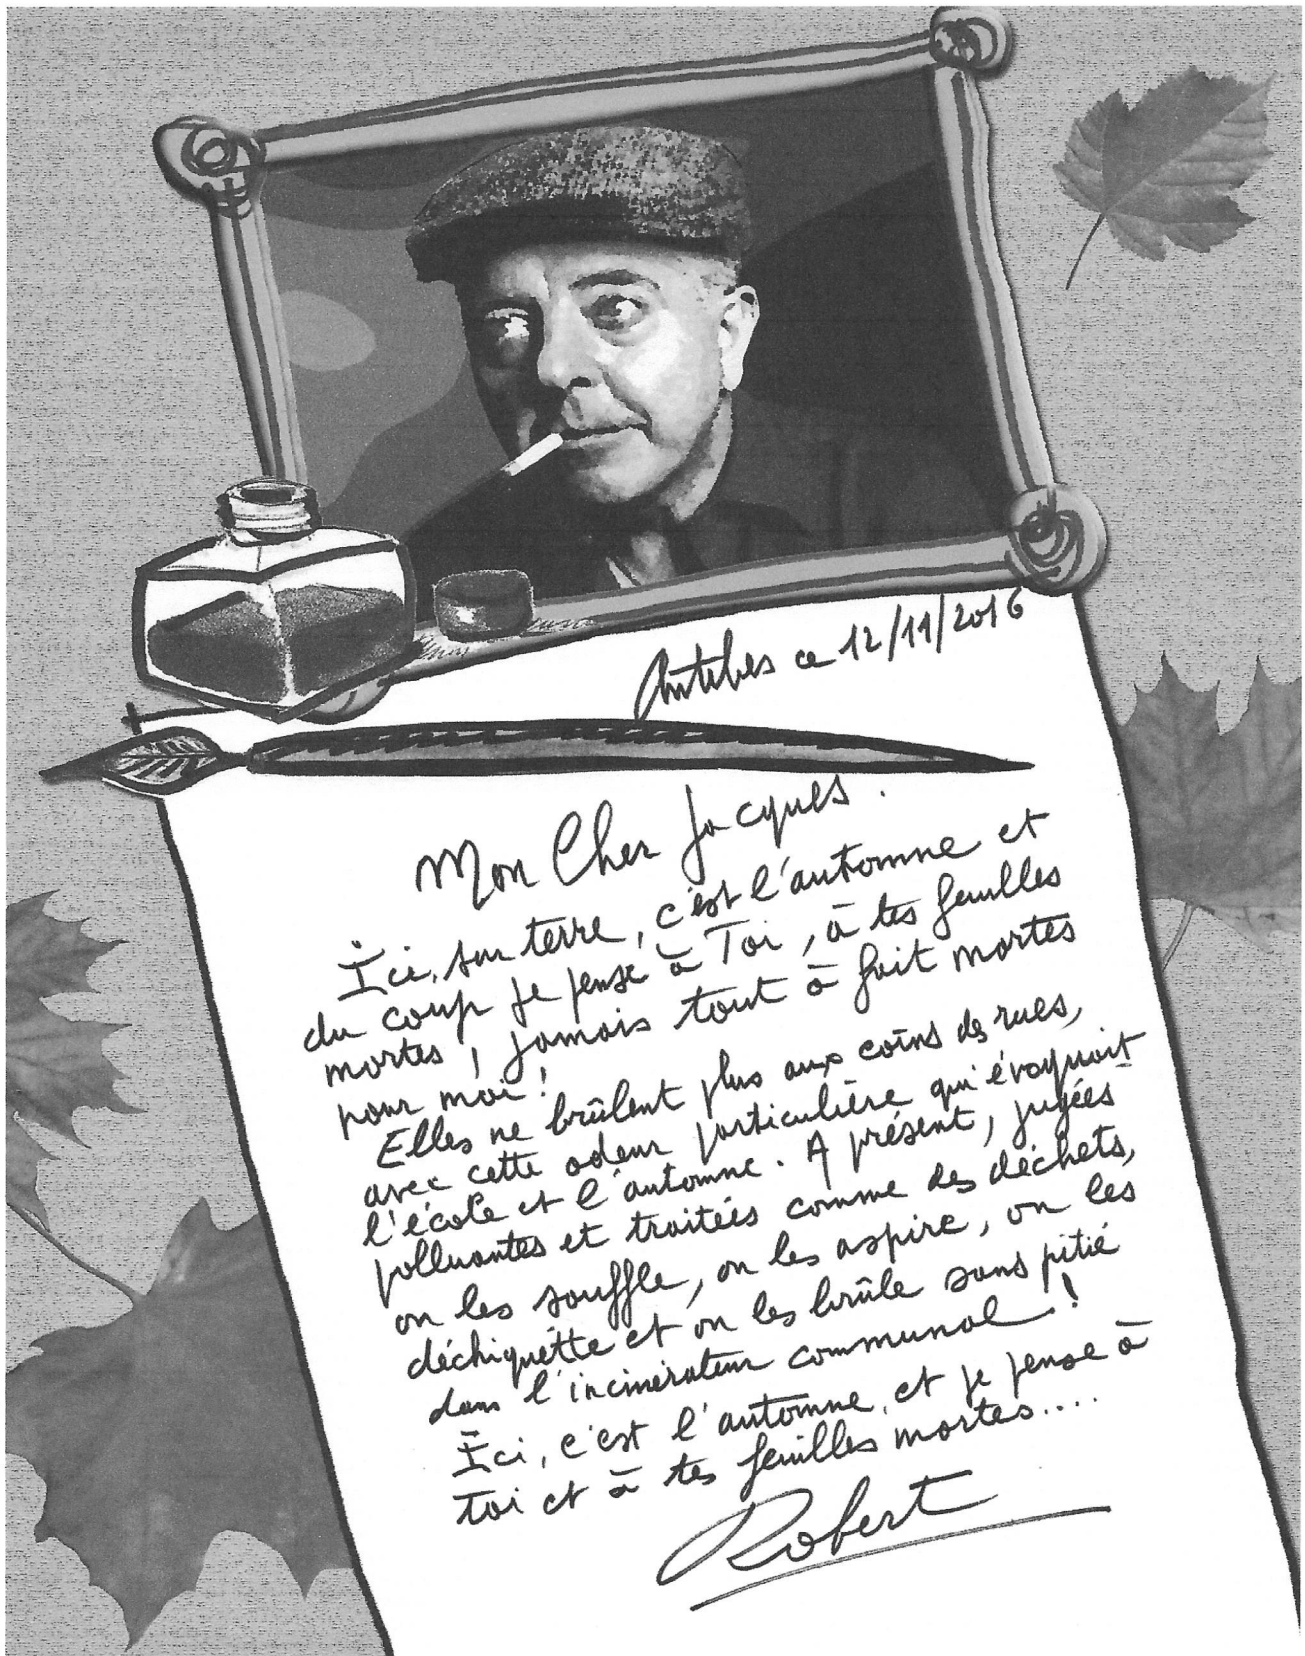 Antibes ce 12/11/2016
Mon Cher Jacques.
Ici, sur terre, c'est l'automne et
du coup je pense à Toi, à tes feuilles
mortes, jamais tout à fait mortes
pour moi!
Elles ne brûlent plus aux coins des rues,
avec cette odeur particulière qui évoquait
l'école et l'automne. A présent, jugées
polluantes et traitées comme des déchets,
on les souffle, on les aspire, on les
déchiquette et on les brûle sans pitié
dans l'incinérateur communal!
Ici, c'est l'automne, et je pense à
toi et à tes feuilles mortes....
Robert